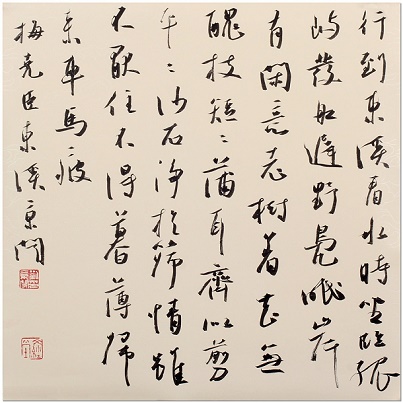 行到東溪看水時坐臨孤
嶼發船遲野鳧眠岸
有閑意老樹着花無
醜枝短〻蒲耳齊似剪
平〻沙石淨於篩情雖
不厭住不得暮薄歸
來車馬疲
梅堯臣東溪